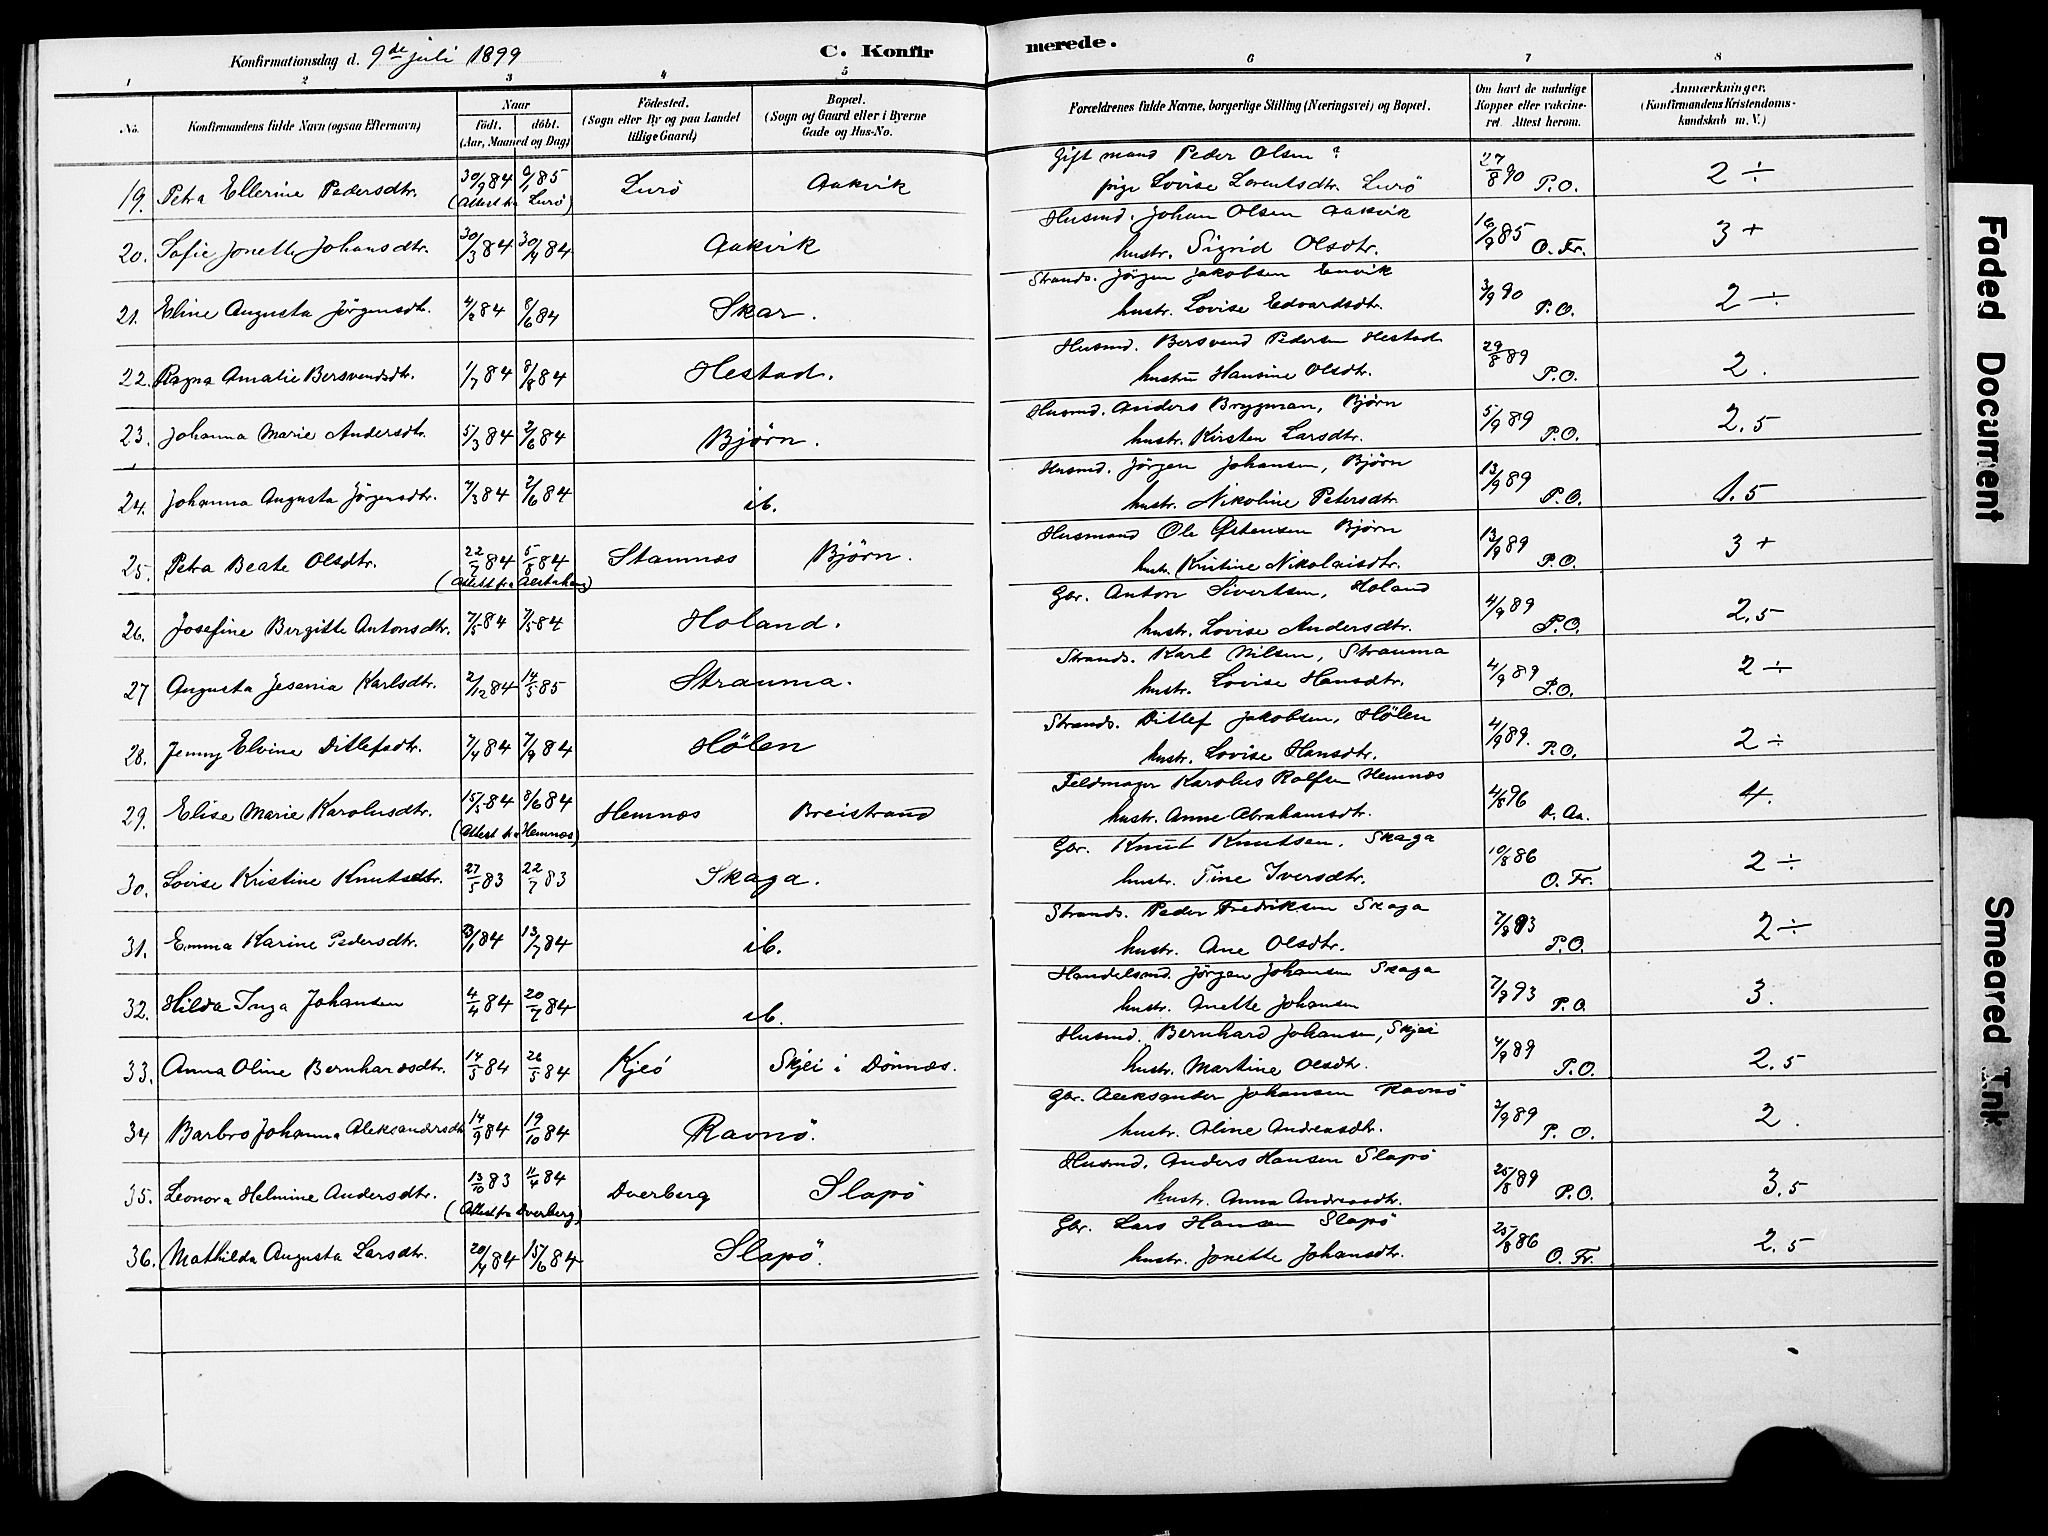 Konfirmationsdag d. 9de juli 1899
C. Konfirmerede.
1 2 3 4 5 6 7 8
No. Konfirmandens fulde Navn (ogsaa Efternavn) Naar født. døbt. (Aar, Maaned og Dag) Fødested. (Sogn eller By og paa Landet tillige Gaard) Bopæl. (Sogn og Gaard eller i Byerne Gade og Hus-No. Forældrenes fulde Navne, borgerlige Stilling (Næringsvei) og Bopæl. Om havt de naturlige Kopper eller vakcineret. Attest herom. Anmærkninger. (Konfirmandens Kristendomskundskab m. V.)
19. Petra Ellerine Pedersdtr. 30/9 84 6/1 85 Lurö Aakvik Gift mand Peder Olsen ? 27/8 90 P.O. 2 ÷
(Attest fra Lurö) pige Lovise Lorentsdtr. Lurö
20. Sofie Jonette Johansdtr. 30/3 84 30/4 84 Aakvik Husmd. Johan Olsen Aakvik 16/9 85 O. Fr. 3 +
hustr. Sigrid Olsdtr.
21. Eline Augusta Jörgensdtr. 4/2 84 8/6 84 Skar. Strands. Jörgen Jakobsen Envik 3/9 90 P.O. 2 ÷
hustr. Lovise Edvardsdtr.
22. Ragna Amalie Bersvendsdtr. 1/7 84 8/8 84 Hestad. Husmd. Bersvend Pedersen Hestad 29/8 89 P.O. 2.
hustru Hansine Olsdtr.
23. Johanna Marie Andersdtr. 5/3 84 2/6 84 Bjørn. Husmd. Anders Brygman, Bjørn 5/9 89 P.O. 2,5
hustr. Kirsten Larsdtr.
24. Johanna Augusta Jörgensdtr. 7/3 84 2/6 84 ib. Husmd. Jörgen Johansen, Bjørn 13/9 89 P.O. 1.5
hustr. Nikoline Petersdtr.
25. Petra Beate Olsdtr. 22/7 84 5/8 84 Stamnæs Bjørn. Husmand Ole Østensen Bjørn 13/9 89 P.O. 3 +
(Attest fra Alstahaug) hustr. Kristine Nikolaisdtr.
26. Josefine Birgitte Antonsdtr. 7/5 84 7/5 84 Holand. Gbr. Anton Sivertsen, Holand 4/9 89 P.O. 2,5
hustr. Lovise Andersdtr.
27 Augusta Jesenia Karlsdtr. 2/12 84 14/5 85 Strauma. Strands. Karl Nilsen, Strauma 4/9 89 P.O. 2 ÷
hustr. Lovise Hansdtr.
28. Jenny Elvine Ditlefsdtr. 7/4 84 7/9 84 Hölen Strands. Ditlef Jakobsen, Hölen 4/9 89. P.O. 2 ÷
hustr. Lovise Hansdtr.
29. Elise Marie Karolusdtr. 15/5 84 8/6 84 Hemnæs Breistrand Feldmager Karolus Rolfsen Hemnæs 4/8 96 A. Aa. 4.
(Attest fra Hemnæs) hustr. Anne Abrahamsdtr.
30. Lovise Kristine Knutsdtr. 27/5 83 22/7 83 Skaga. Gbr. Knut Knutsen, Skaga 10/8 86 O. Fr. 2 ÷
hustr. Tine Iversdtr.
31. Emma Karine Pedersdtr. 23/1 84 13/7 84 ib. Strands. Peder Fredriksen Skaga 7/9 93 P.O. 2 ÷
hustr. Ane Olsdtr.
32. Hilda Inga Johansen 4/4 84 20/7 84 ib. Handelsmd. Jörgen Johansen Skaga 7/9 93 P.O. 3.
hustr. Anette Johansen
33. Anna Oline Bernhardsdtr. 14/5 84 26/5 84 Kjeö Skjei i Dönnæs. Husmd. Bernhard Johansen, Skjei 4/9 89 P.O. 2.5
hustr. Martine Olsdtr.
34 Barbro Johanna Aleksandersdtr 14/9 84 19/10 84 Ravnö. Gbr. Aleksander Johansen Ravnö 2/9 89 P. O. 2.
hustr. Aline Andreasdtr.
35. Leonora Helmine Andersdtr. 13/10 83 11/4 84 Dverberg Slapö Husmd. Anders Hansen Slapö 25/8 89 P.O. 3.5
(Attest fra Dverberg) hustr. Anna Andreasdtr.
36. Mathilda Augusta Larsdtr. 20/4 84 15/6 84 Slapö. Gbr. Lars Hansen Slapö 25/8 86 O. Fr. 2.5
hustr. Jonette Johansdtr.
Faded Document
Smeared Ink